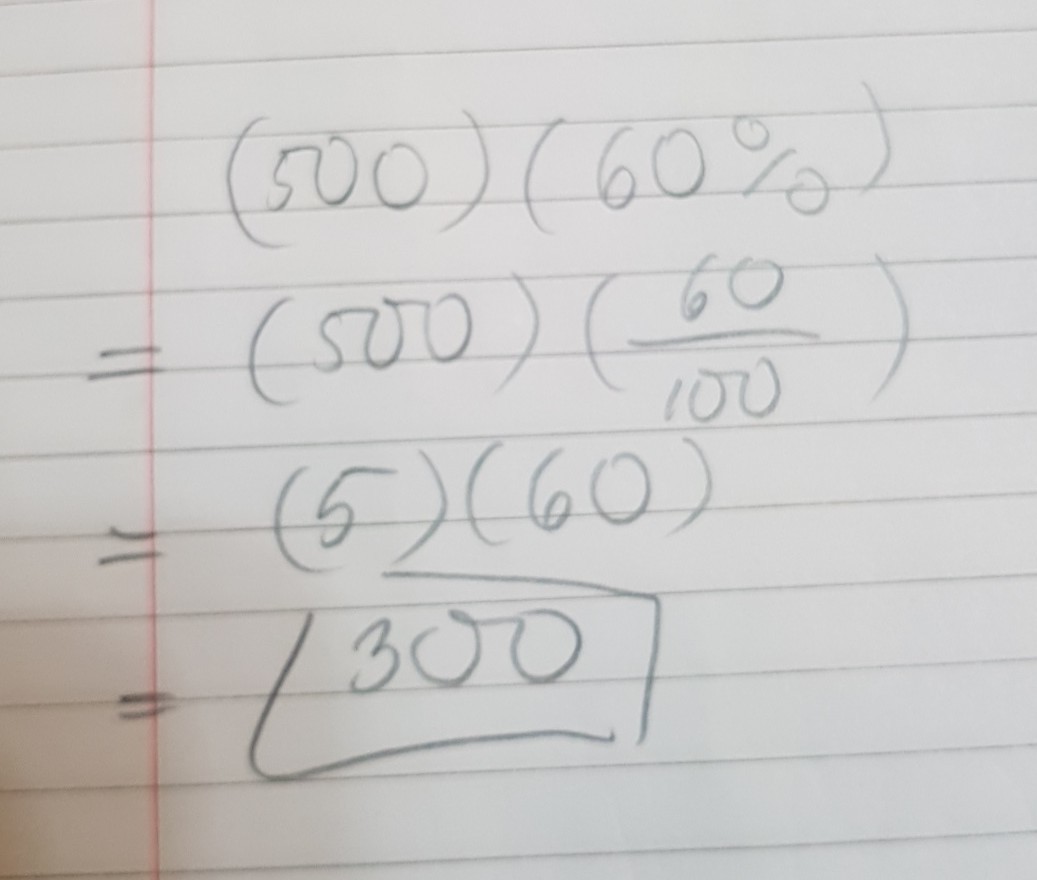 (500)(60%)
= (500)(60/100)
= (5)(60)
= 300